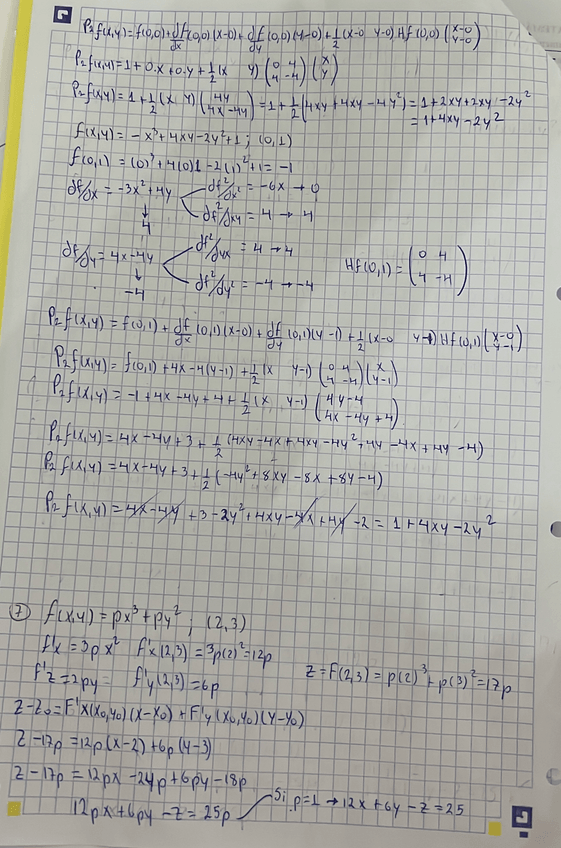 P₂f(x,y)=f(0,0)+df/dx(0,0)(x-0)+df/dy(0,0)(y-0)+1/2(x-0 y-0)Hf(0,0)(x-0 y-0)
P₂f(x,y)=1+0·x+0·y+1/2(x y)(0 4 4 -4)(x y)
P₂f(x,y)=1+1/2(x y)(4y 4x-4y)=1+1/2(4xy+4xy-4y²)=1+2xy+2xy-2y²
=1+4xy-2y²
f(x,y)=-x³+4xy-2y²+1; (0,1)
f(0,1)=(0)³+4(0)1-2(1)²+1=-1
df/dx=-3x²+4y df²/dx²=-6x→0
↓ 4 df²/dxy=4→4
df/dy=4x-4y df²/dyx=4→4 Hf(0,1)=(0 4 4 -4)
↓ -4 df²/dy²=-4→-4
P₂f(x,y)=f(0,1)+df/dx(0,1)(x-0)+df/dy(0,1)(y-1)+1/2(x-0 y-1)Hf(0,1)(x-0 y-1)
P₂f(x,y)=f(0,1)+4x-4(y-1)+1/2(x y-1)(0 4 4 -4)(x y-1)
P₂f(x,y)=-1+4x-4y+4+1/2(x y-1)(4y-4 4x-4y+4)
P₂f(x,y)=4x-4y+3+1/2(4xy-4x+4xy-4y²+4y-4x+4y-4)
P₂f(x,y)=4x-4y+3+1/2(-4y²+8xy-8x+8y-4)
P₂f(x,y)=4x-4y+3-2y²+4xy-4x+4y-2=1+4xy-2y²
7 f(x,y)=px³+py²; (2,3)
f'x=3px² f'x(2,3)=3p(2)²=12p
f'z=2py= f'y(2,3)=6p z=F(2,3)=p(2)³+p(3)²=17p
z-z₀=F'x(x₀,y₀)(x-x₀)+F'y(x₀,y₀)(y-y₀)
z-17p=12p(x-2)+6p(y-3)
z-17p=12px-24p+6py-18p
12px+6py-z=25p Si p=1→12x+6y-z=25